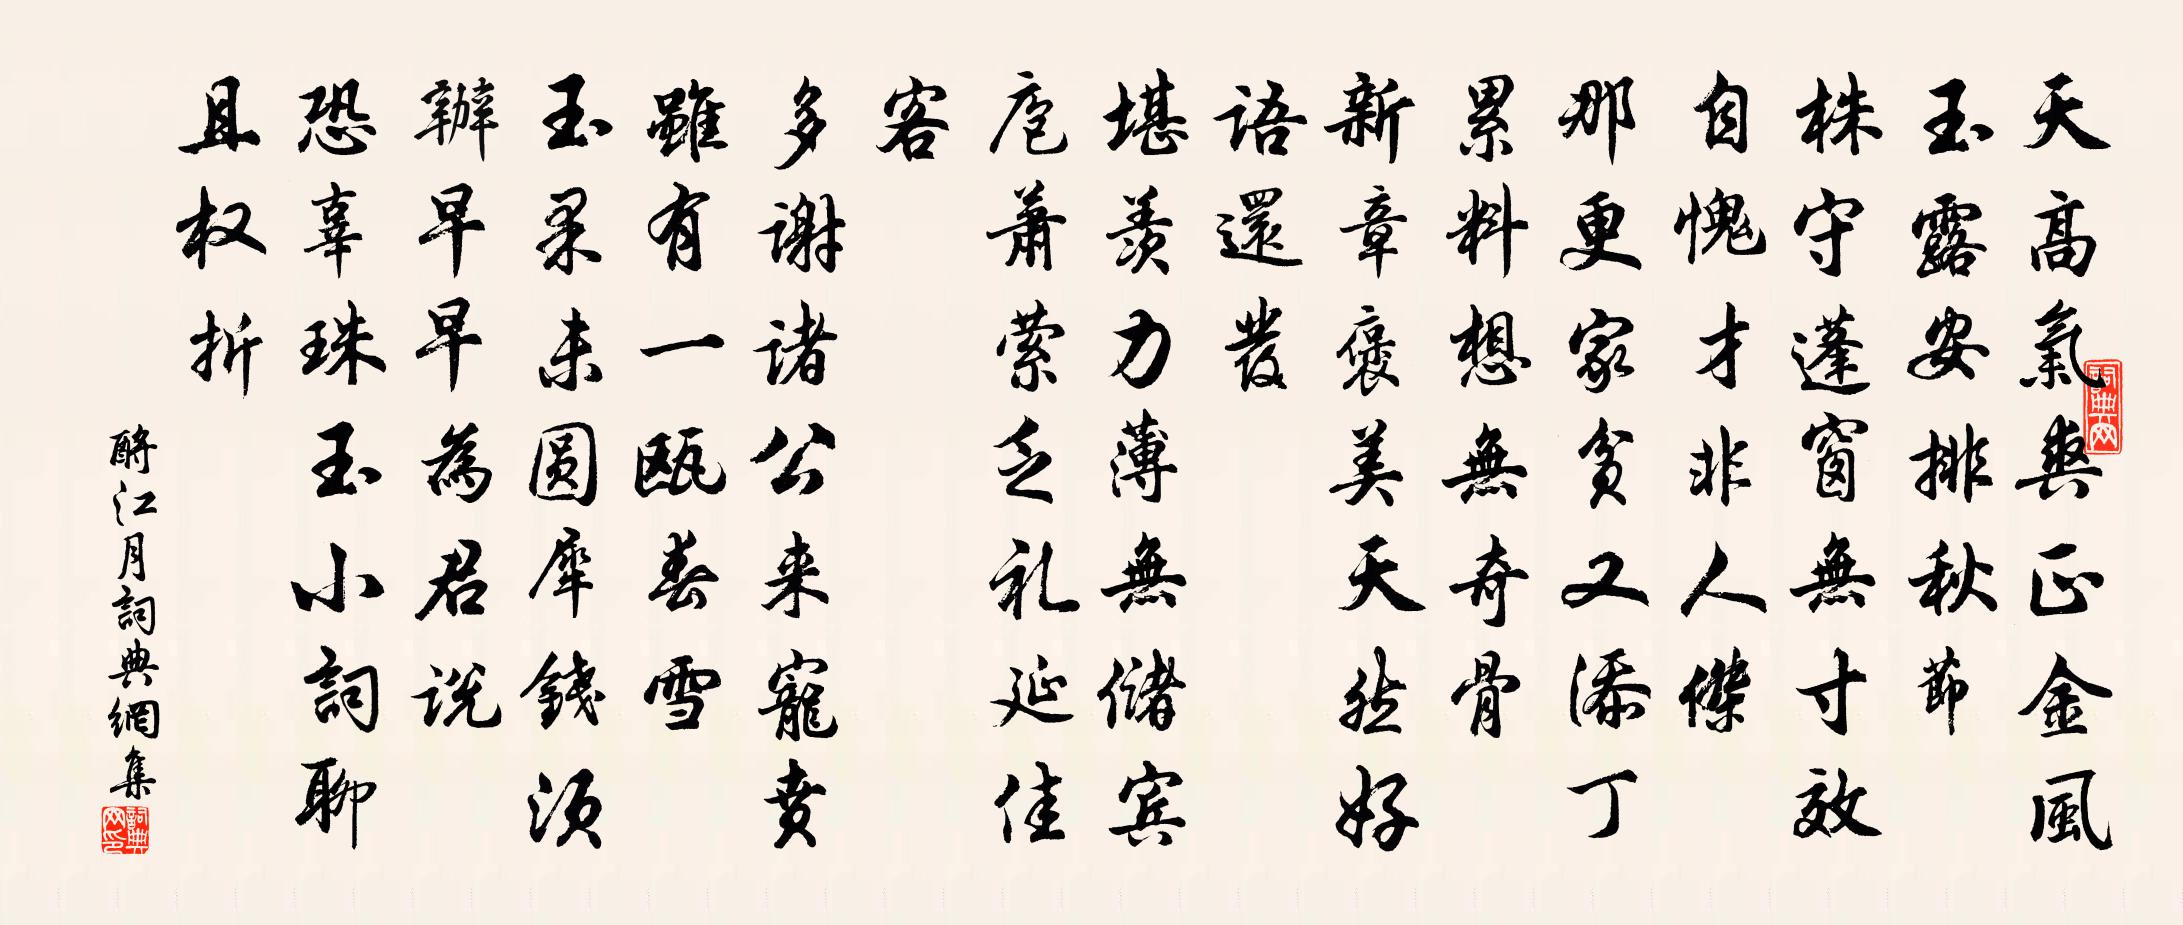 天高氣爽正金風
玉露安排秋節
株守蓬窗無寸效
自愧才非人傑
那更家貧又添丁
累料想無奇骨
新章褒美天然好
語還發
堪羨力薄無儲宾
庖萧索乏礼延佳
客
多谢诸公来寵賁
雖有一瓯春雪
玉果未圆犀錢须
辦早早為君说
恐辜珠玉小詞聊
且权折
酹江月詞典網集
詞典网
詞典网印